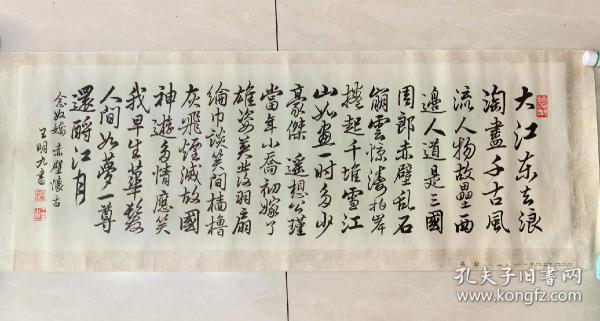 大江东去浪
淘盡千古風
流人物故壘西
邊人道是三國
周郎赤壁乱石
崩雲惊涛拍岸
捲起千堆雪江
山如畫一時多少
豪傑 遥想公瑾
當年小喬初嫁了
雄姿英發羽扇
綸巾談笑間檣櫓
灰飛煙滅故國
神遊多情應笑
我早生華髮
人间如夢一尊
還酹江月
念奴娇 赤壁懷古
王明九書
孔夫子旧书网
www.kongfz.com